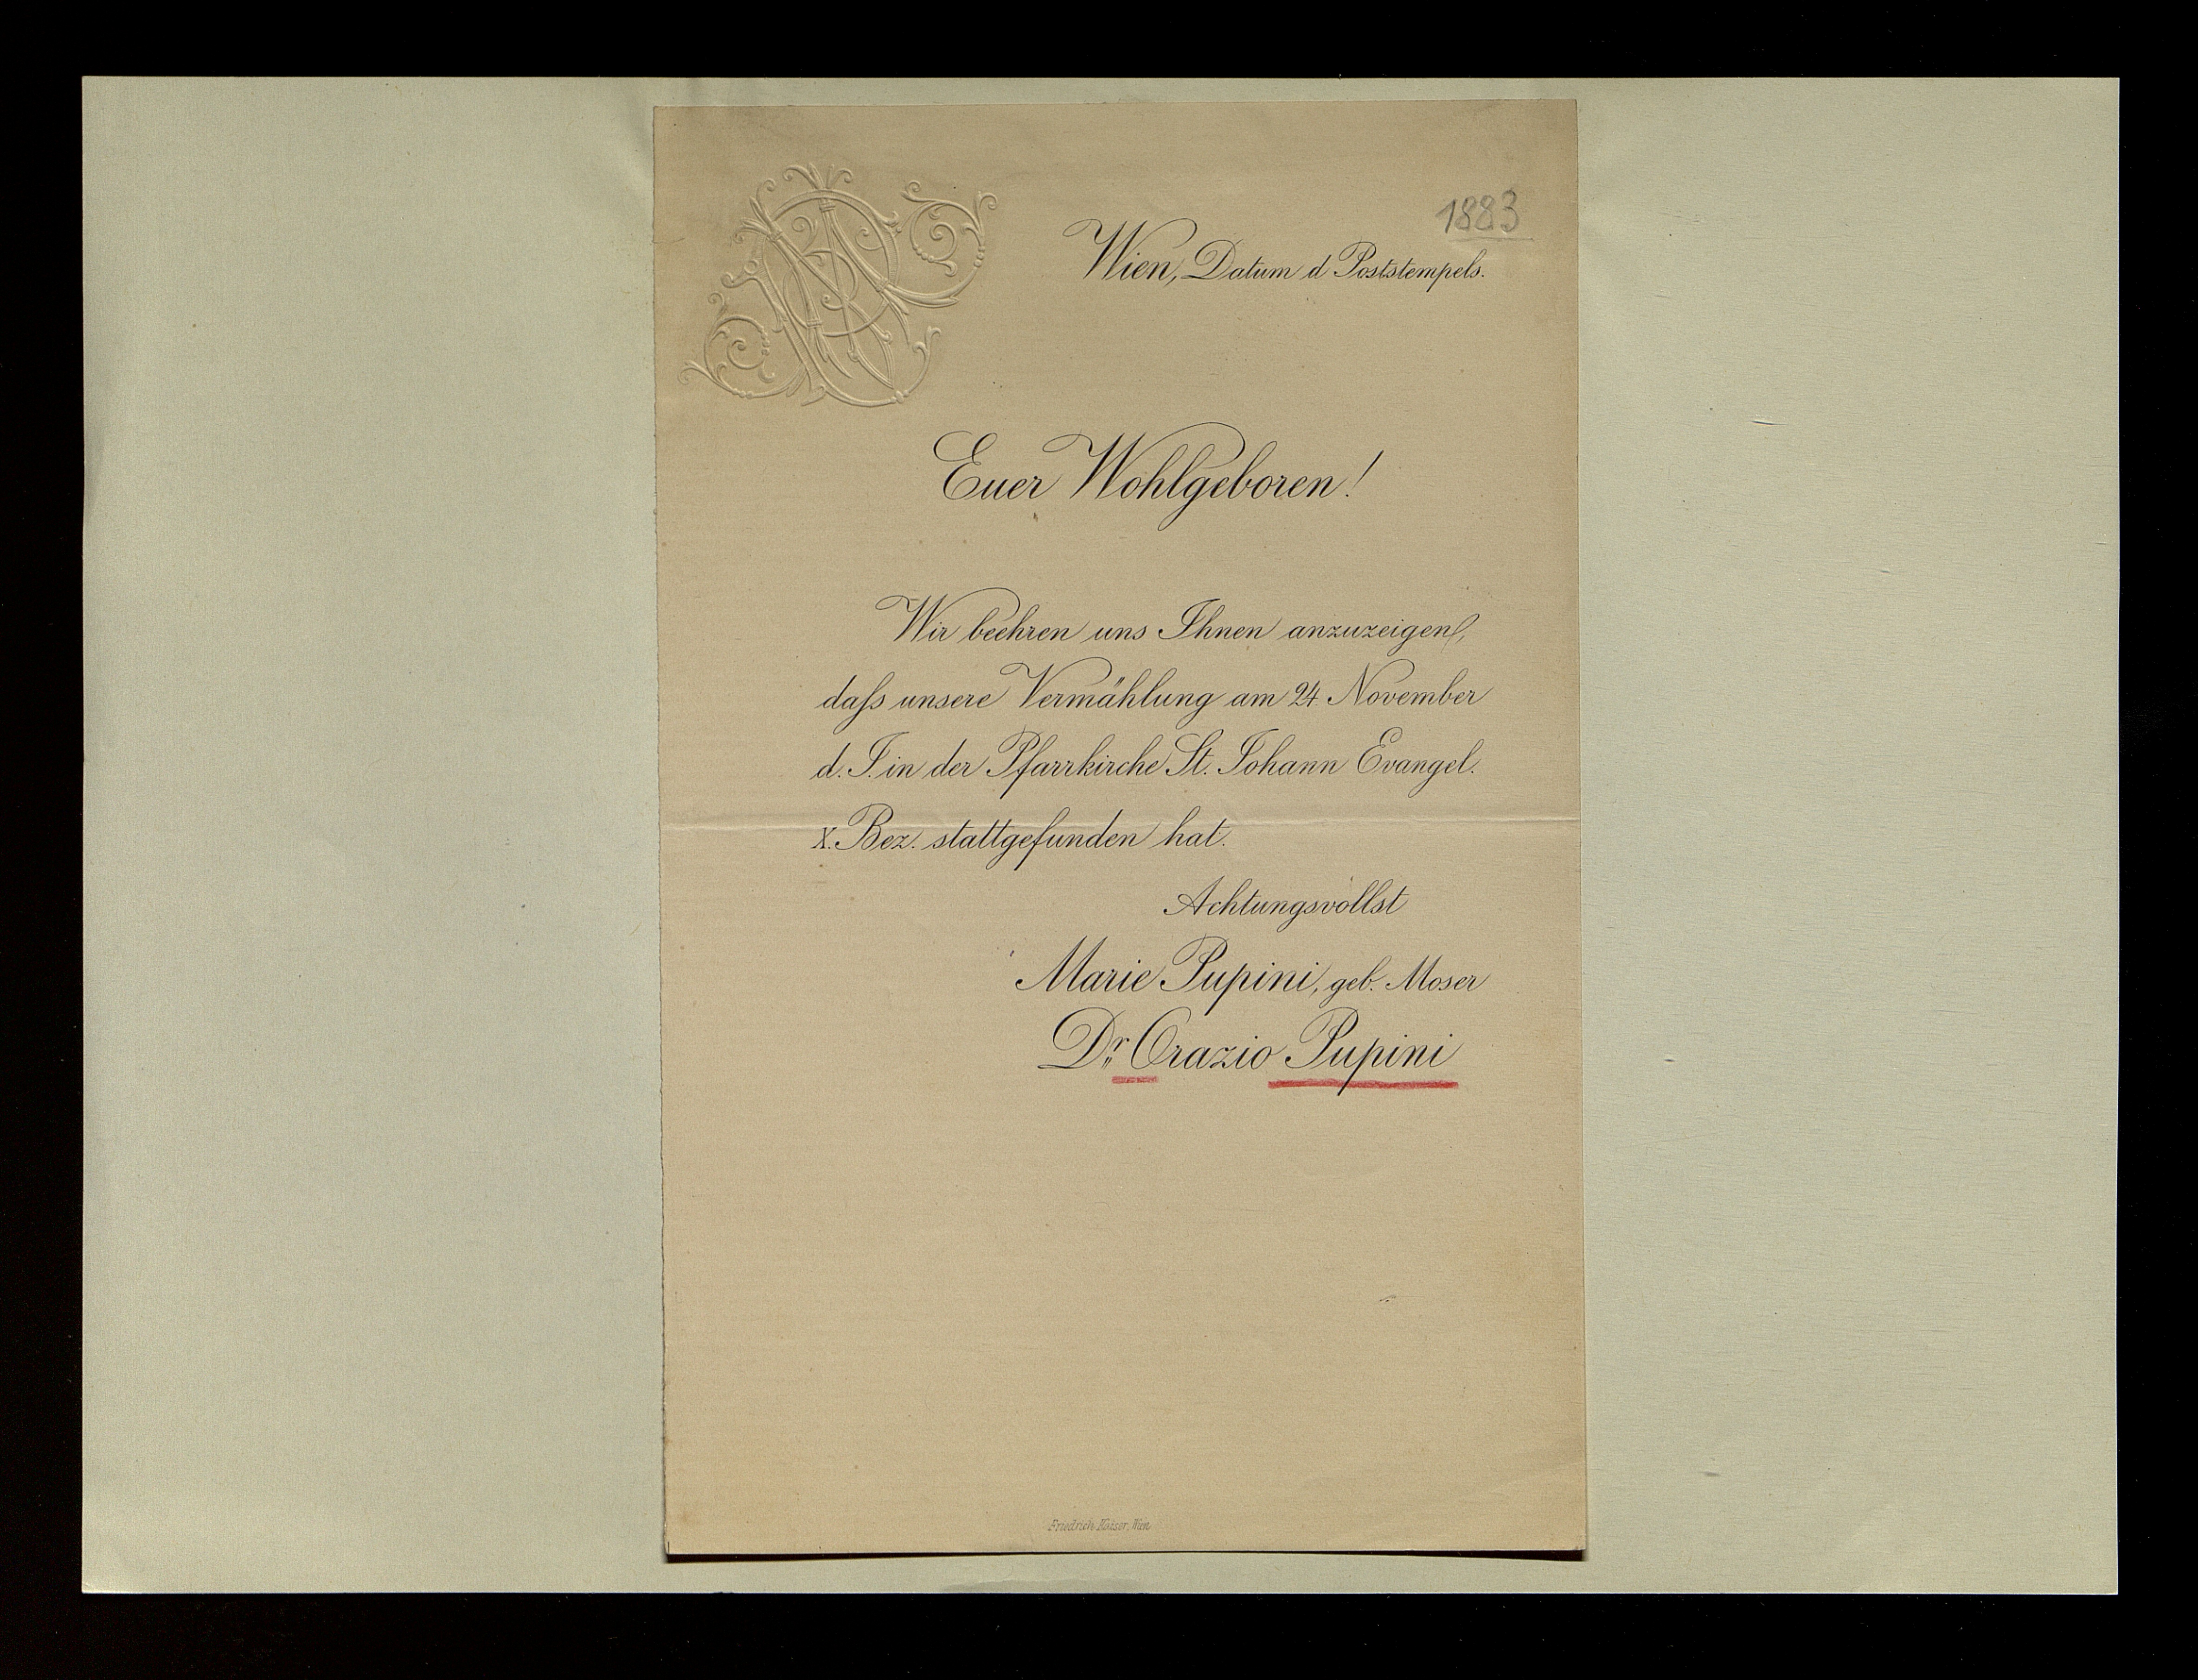 1883
Wien, Datum d Poststempels.
Euer Wohlgeboren!
Wir beehren uns Ihnen anzuzeigen,
daſs unsere Vermählung am 24. November
d. J. in der Pfarrkirche St. Johann Evangel.
X. Bez. stattgefunden hat.
Achtungsvollst
Marie Pupini, geb. Moser
Dr. Orazio Pupini
Friedrich Kaiser, Wien